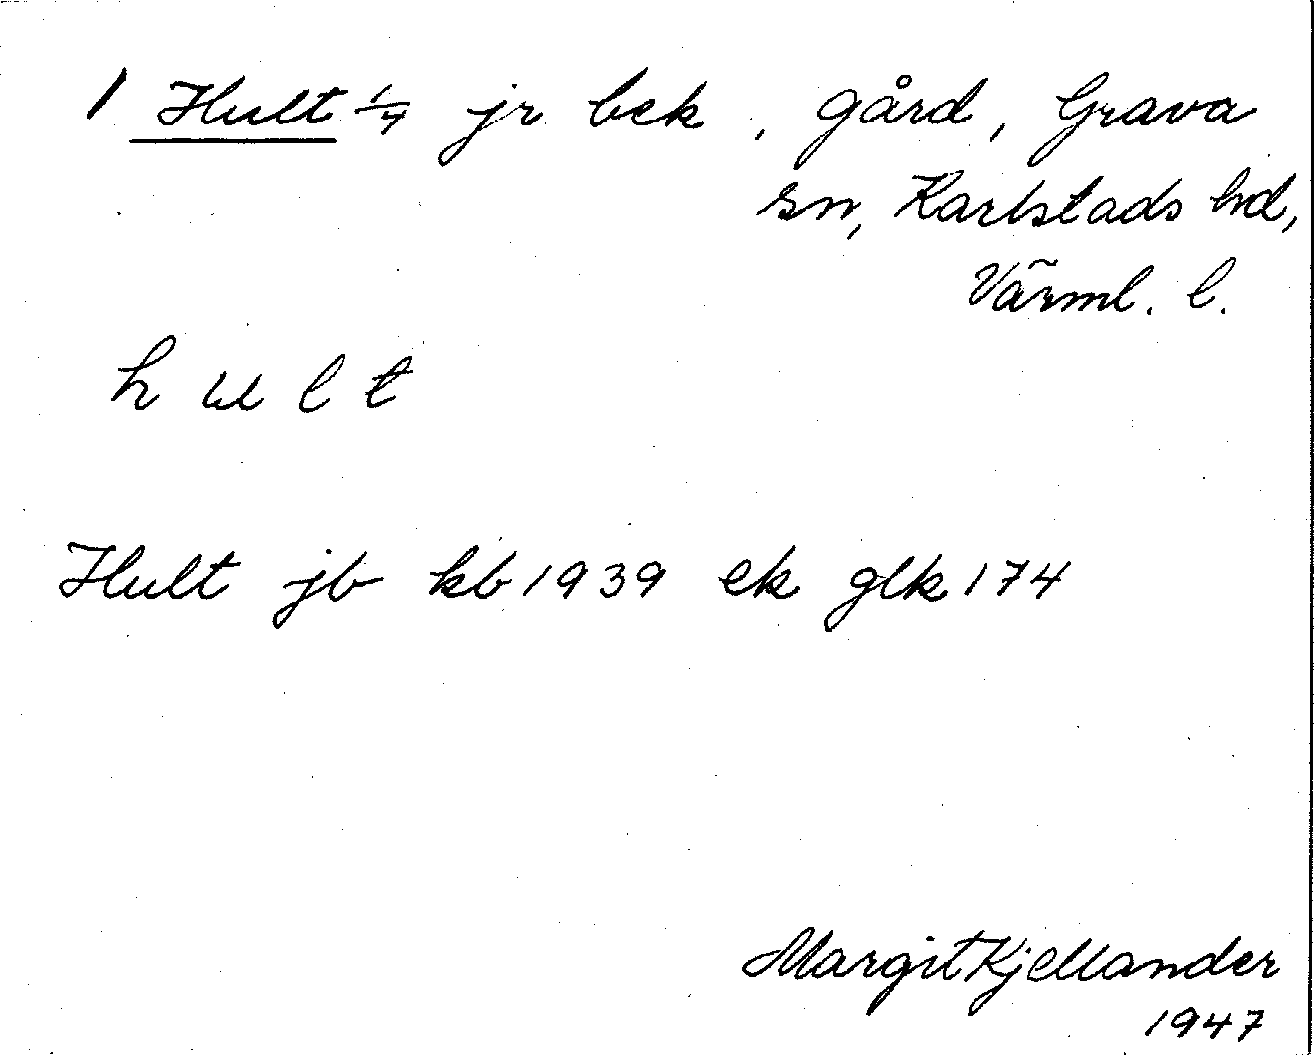 1 Hult 1/4 jr bek, gård, Grava
sn, Karlstads hd,
Värml. l.
hult
Hult jb kb 1939 ek glk 174
Margit Kjellander
1947